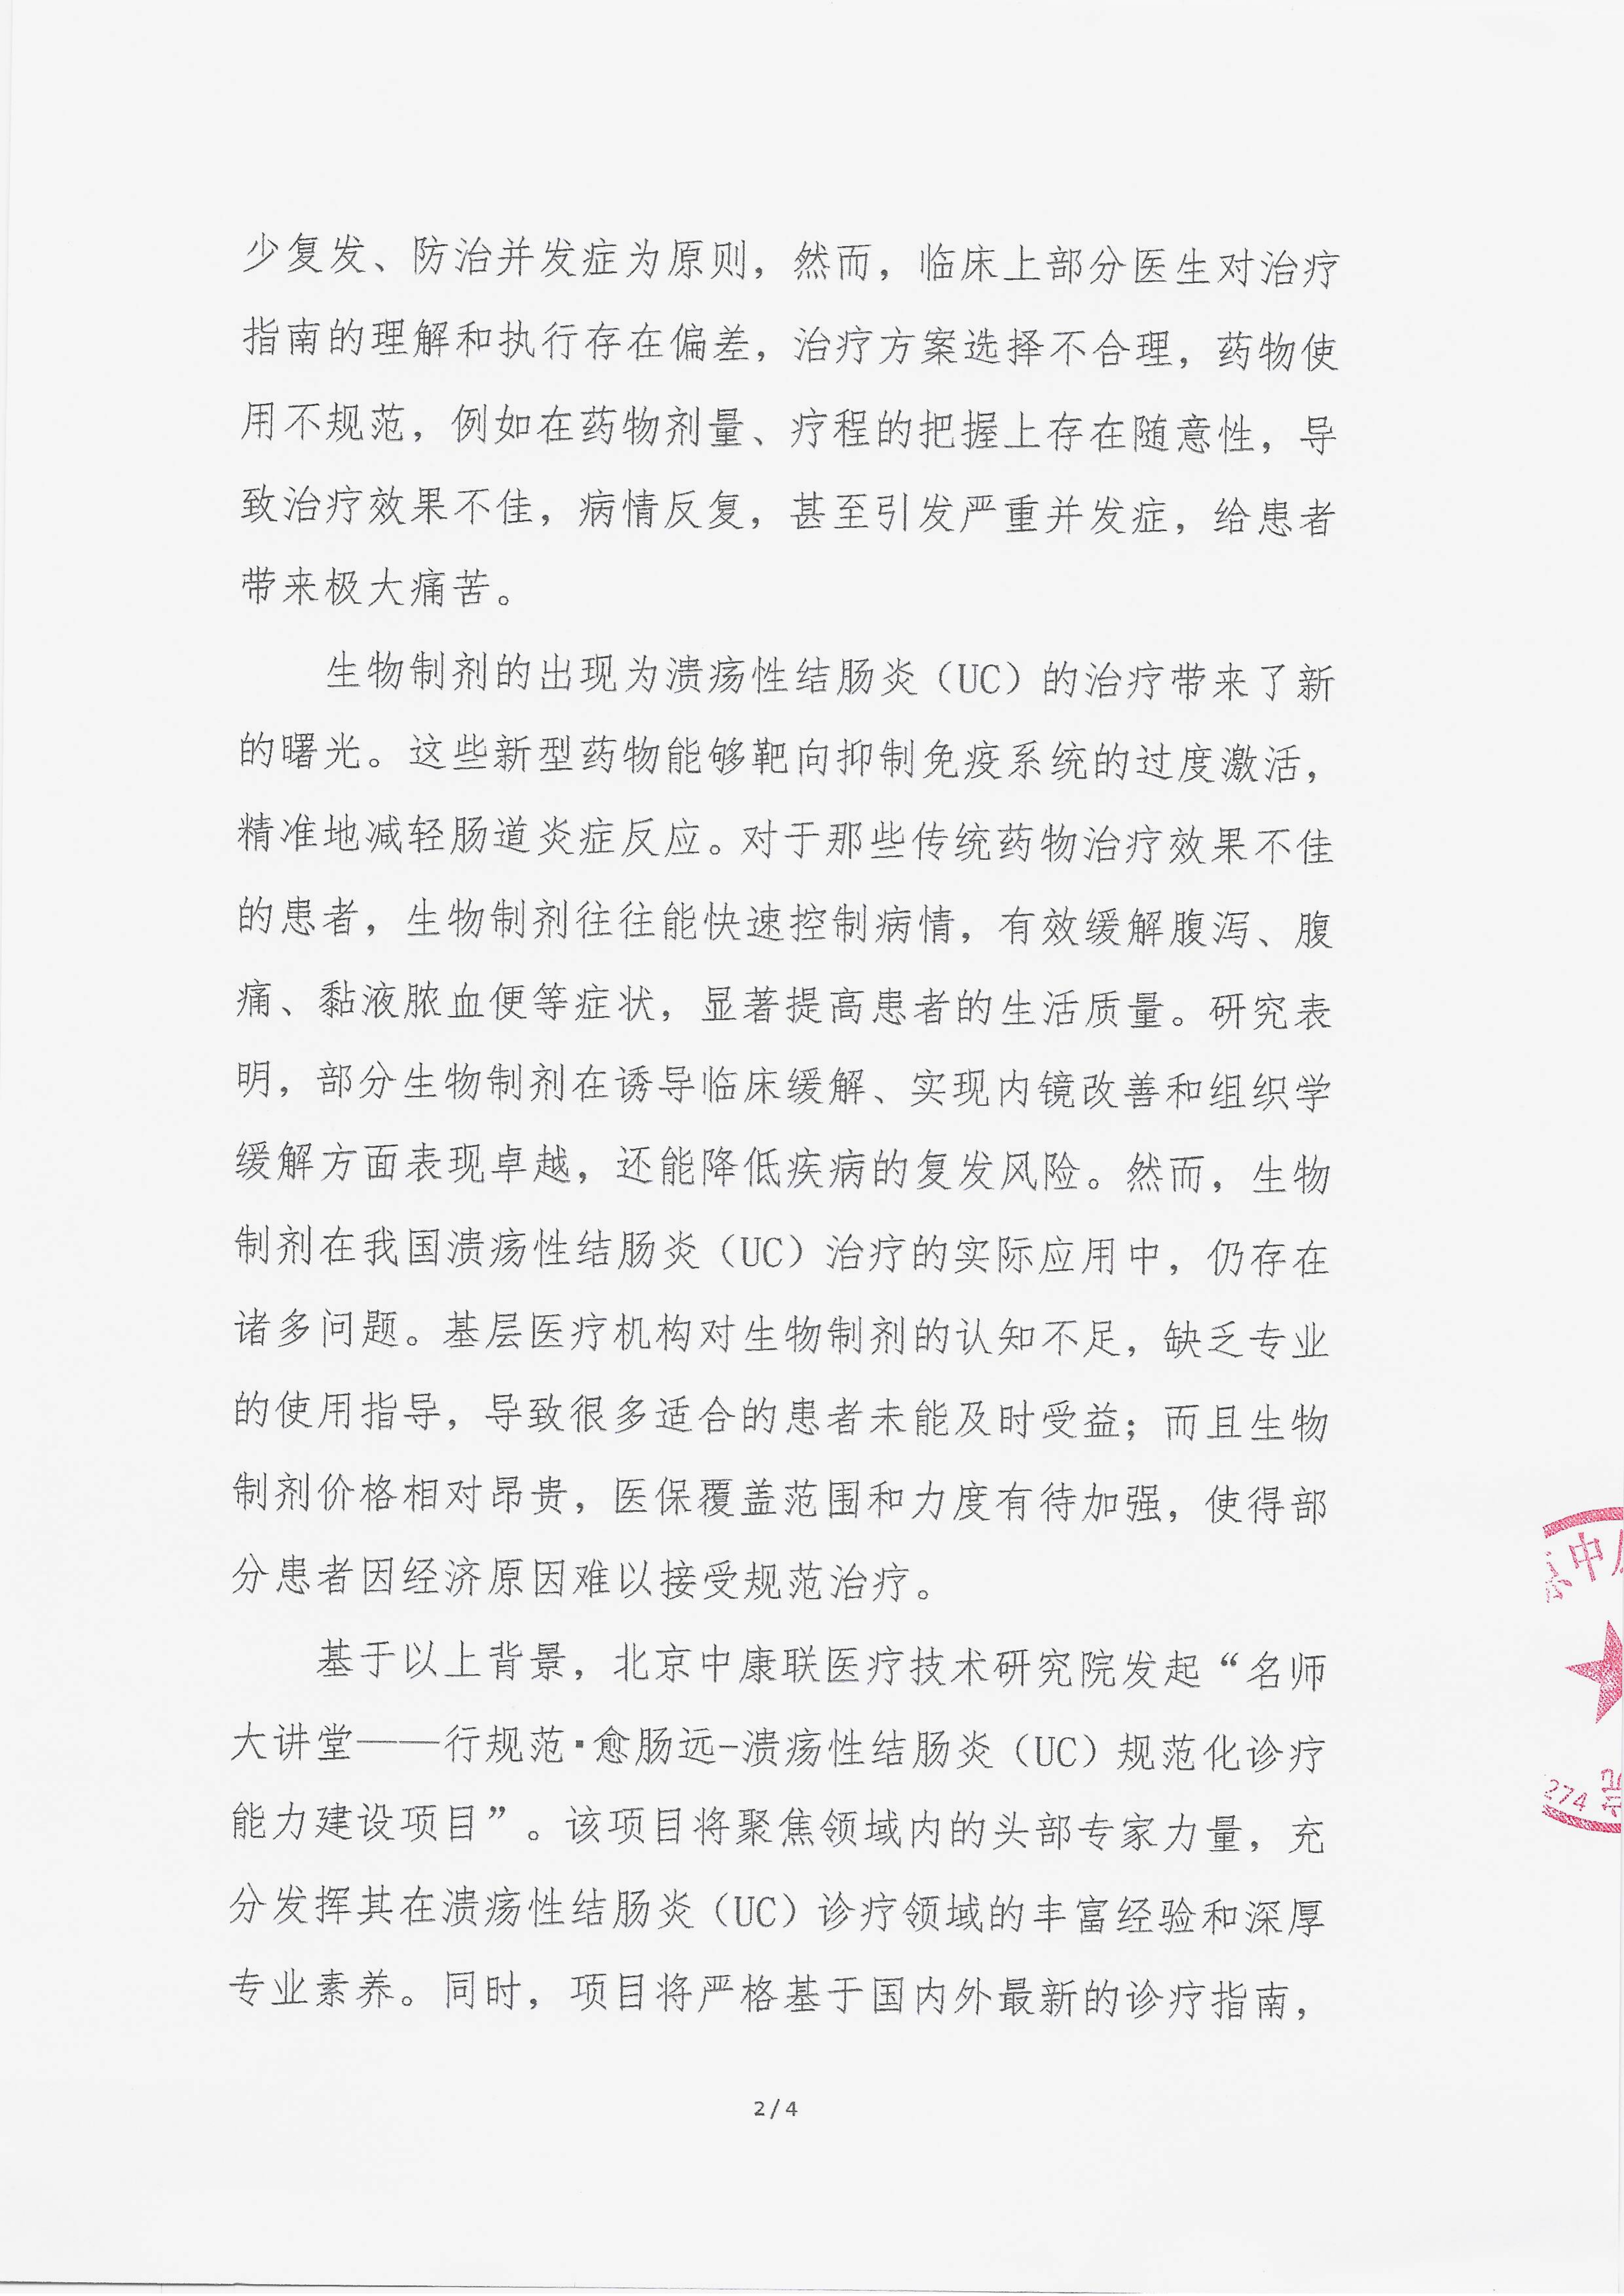 少复发、防治并发症为原则，然而，临床上部分医生对治疗
指南的理解和执行存在偏差，治疗方案选择不合理，药物使
用不规范，例如在药物剂量、疗程的把握上存在随意性，导
致治疗效果不佳，病情反复，甚至引发严重并发症，给患者
带来极大痛苦。
生物制剂的出现为溃疡性结肠炎（UC）的治疗带来了新
的曙光。这些新型药物能够靶向抑制免疫系统的过度激活，
精准地减轻肠道炎症反应。对于那些传统药物治疗效果不佳
的患者，生物制剂往往能快速控制病情，有效缓解腹泻、腹
痛、黏液脓血便等症状，显著提高患者的生活质量。研究表
明，部分生物制剂在诱导临床缓解、实现内镜改善和组织学
缓解方面表现卓越，还能降低疾病的复发风险。然而，生物
制剂在我国溃疡性结肠炎（UC）治疗的实际应用中，仍存在
诸多问题。基层医疗机构对生物制剂的认知不足，缺乏专业
的使用指导，导致很多适合的患者未能及时受益；而且生物
制剂价格相对昂贵，医保覆盖范围和力度有待加强，使得部
分患者因经济原因难以接受规范治疗。
基于以上背景，北京中康联医疗技术研究院发起“名师
大讲堂——行规范·愈肠远-溃疡性结肠炎（UC）规范化诊疗
能力建设项目”。该项目将聚焦领域内的头部专家力量，充
分发挥其在溃疡性结肠炎（UC）诊疗领域的丰富经验和深厚
专业素养。同时，项目将严格基于国内外最新的诊疗指南，
京中
274
2/4